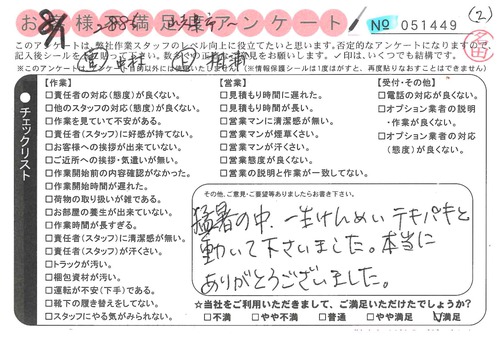 お客様満足アンケート No 051449 ②
このアンケートは、弊社作業スタッフのレベル向上に役立てたいと思います。否定的なアンケートになりますので、
記入後シールを
お願いします。✓印は、いくつでも結構です。
※このアンケートは
目的以外には
(※情報保護シールは1度はがすと、再度貼りなおすことはできません)
チェックリスト
【作業】
□責任者の対応(態度)が良くない。
□他のスタッフの対応(態度)が良くない。
□作業を見ていて不安がある。
□責任者(スタッフ)に好感が持てない。
□お客様への挨拶が出来ていない。
□ご近所への挨拶・気遣いが無い。
□作業開始前の内容確認がなかった。
□作業開始時間が遅れた。
□荷物の取り扱いが雑である。
□お部屋の養生が出来ていない。
□作業時間が長すぎる。
□責任者(スタッフ)に清潔感が無い。
□責任者(スタッフ)が汗くさい。
□トラックが汚い。
□梱包資材が汚い。
□運転が不安(下手)である。
□靴下の履き替えをしてない。
□スタッフにやる気がみられない。
【営業】
□見積もり時間に遅れた。
□見積もり時間が長い。
□営業マンに清潔感が無い。
□営業マンが煙草くさい。
□営業マンが汗くさい。
□営業態度が良くない。
□営業の説明と作業が一致してない。
【受付・その他】
□電話の対応が良くない。
□オプション業者の説明
・作業が良くない。
□オプション業者の対応
(態度)が良くない。
その他、ご意見・ご要望等ありましたらお書き下さい。
猛暑の中、一生けんめいテキパキと
動いて下さいました。本当に
ありがとうございました。
☆当社をご利用いただきまして、ご満足いただけたでしょうか?
□不満 □やや不満 □普通 □やや満足 ☑満足